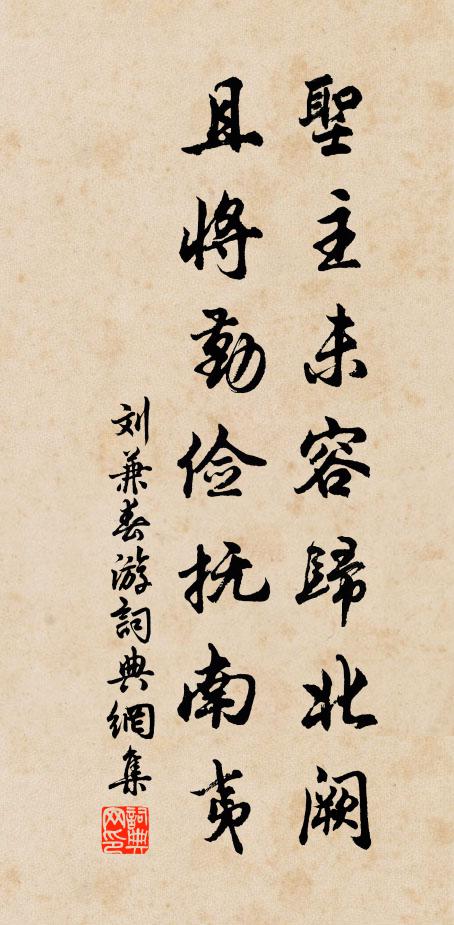 聖主未容歸北阙
且將勤俭抚南夷
刘兼春游詞典網集
詞典网印